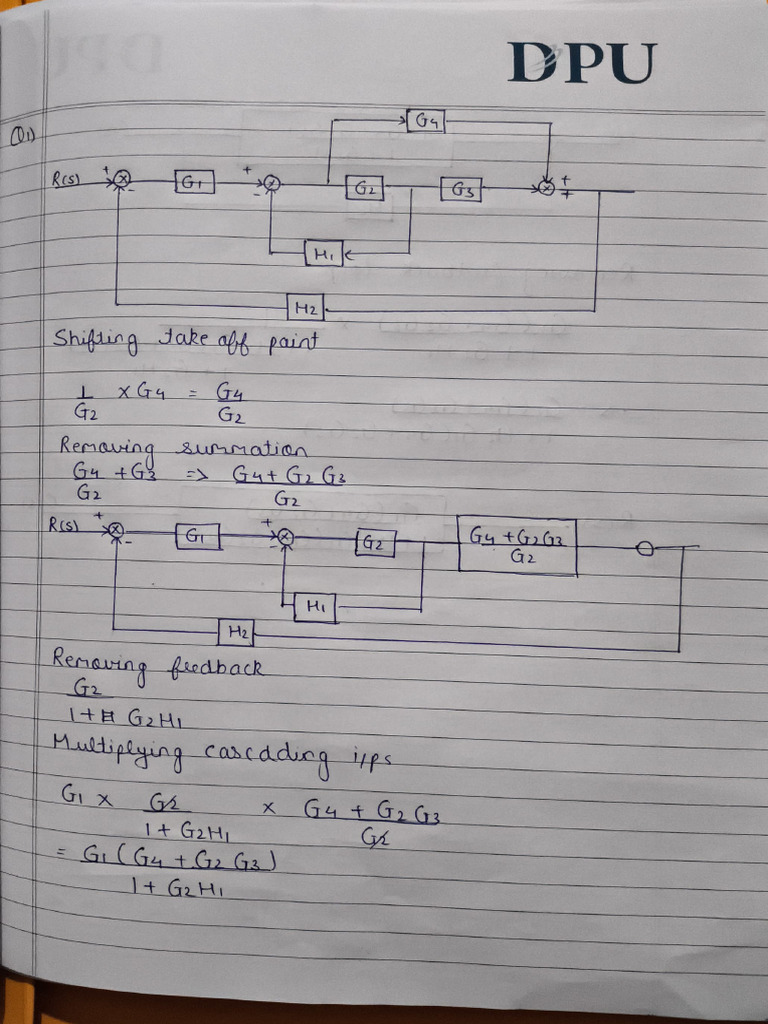 DPU
Q1)
G4
R(s) + - G1 + - G2 G3 + +
H1
H2
Shifting take off point
1/G2 × G4 = G4/G2
Removing summation
G4/G2 + G3 => G4 + G2 G3/G2
R(s) + - G1 + - G2 G4 + G2G3/G2
H1
H2
Removing feedback
G2/1 + G2H1
Multiplying cascadding i/ps
G1 × G2/1 + G2H1 × G4 + G2 G3/G2
= G1 (G4 + G2 G3)/1 + G2H1